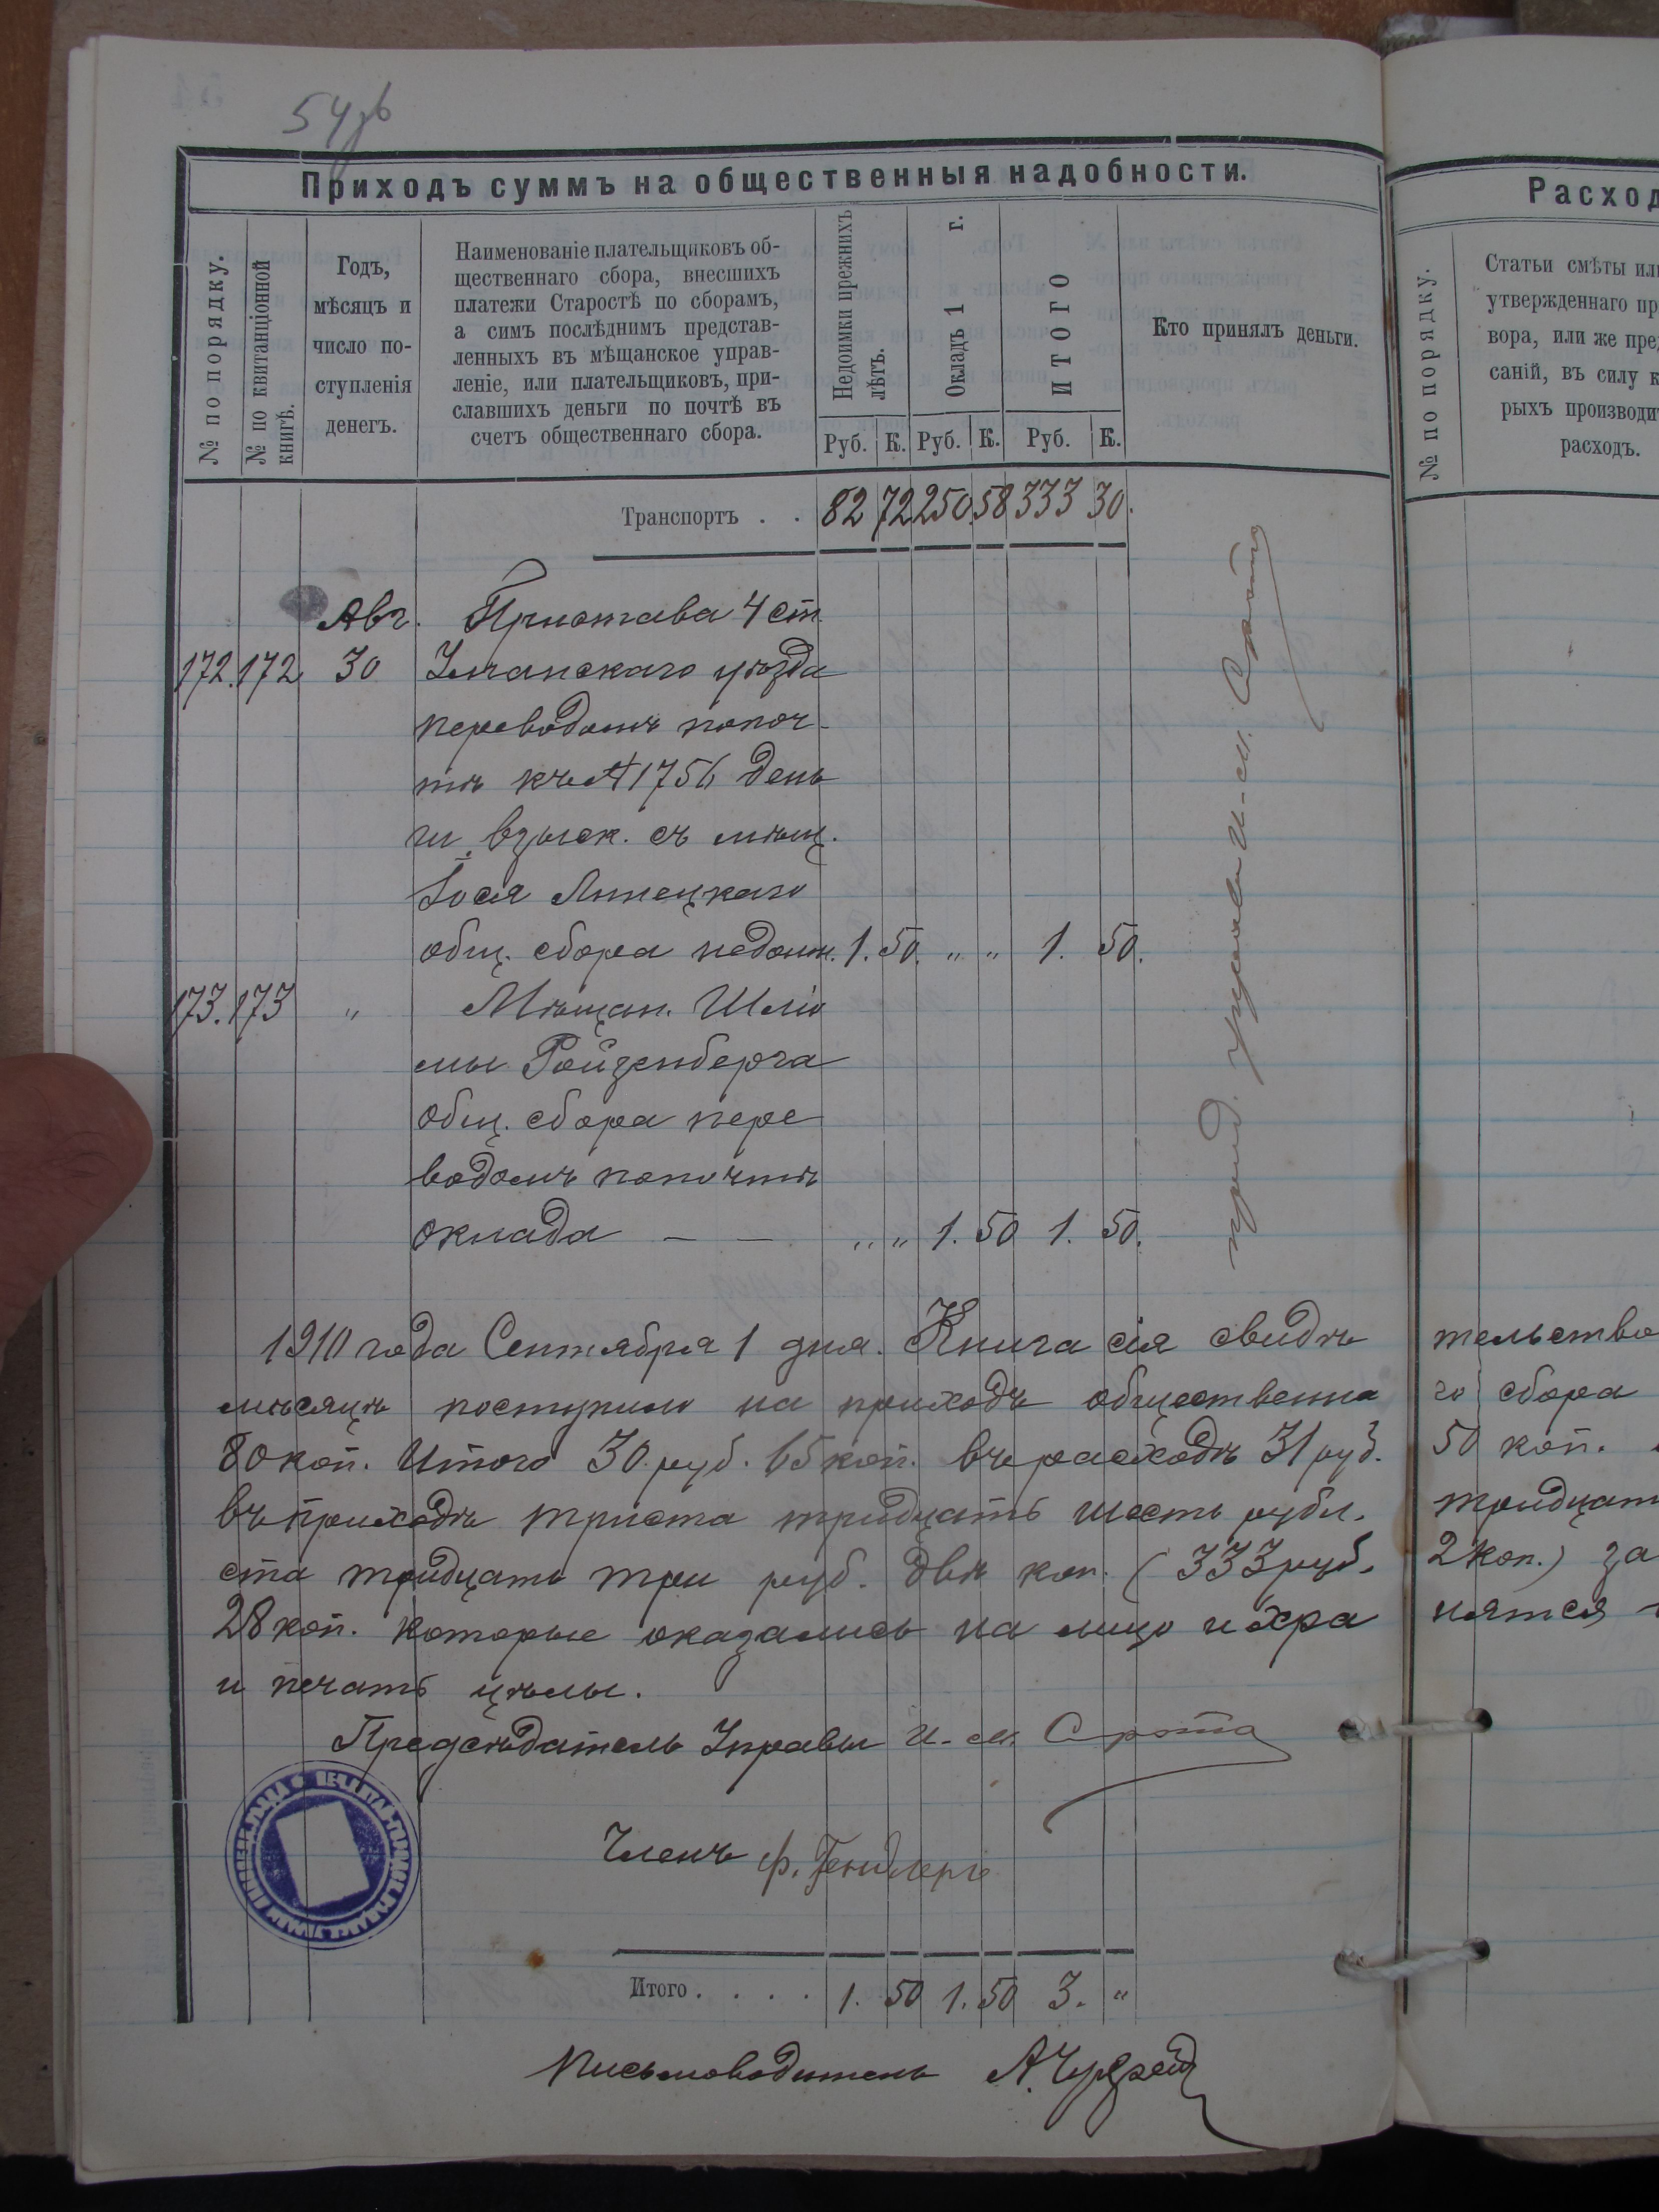 54 зв
Приходъ суммъ на общественныя надобности.
№ по порядку.
№ по квитанціонной книгѣ.
Годъ,
мѣсяцъ и
число по-
ступленія
денегъ.
Наименованіе плательщиковъ об-
щественнаго сбора, внесшихъ
платежи Старостѣ по сборамъ,
а симъ послѣднимъ представ-
ленныхъ въ мѣщанское управ-
леніе, или плательщиковъ, при-
славшихъ деньги по почтѣ въ
счетъ общественнаго сбора.
Недоимки прежнихъ лѣтъ.
Окладъ 1 г.
ИТОГО
Кто принялъ деньги.
Руб. К. Руб. К. Руб. К.
Транспортъ . . 82 72 250 58 333 30.
Авг. Пристава 4 ст.
172. 172 30 Уманскаго уѣзда
переводомъ по поч-
тѣ къ № 1756 день
ги взыск. съ мѣщ.
Іося Липецкаго
общ. сбора недоим. 1. 50. " " 1. 50.
173. 173 " Мѣщан. Шлио
мы Ройзенберга
общ. сбора пере
водомъ по почтѣ
оклада — — " " 1. 50 1. 50.
пред. управы И-м. Срота
1910 года Сентября 1 дня. Книга сія свидѣ
мѣсяцѣ поступило на приходъ общественна
80 коп. Итого 30 руб. 65 коп. въ расходѣ 31 руб.
въ приходѣ триста тридцать шесть рубл.
ста тридцать три руб. двѣ коп. (333 руб.
28 коп. которые оказались на лицо и хра
и печать цѣлы.
Предсѣдатель Управы И-м. Срота
Членъ Ф. Гендлеръ
Итого . . . . 1. 50 1. 50 3. "
Письмоводитель А.
Расход
№ по порядку.
Статьи смѣты или
утвержденнаго пр
вора, или же пред
саній, въ силу к
рыхъ производит
расходъ.
тельство
го сбора
50 коп.
тридцат
2 коп.) за
нятся